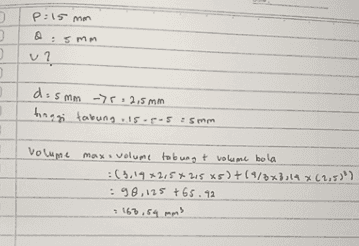 P = 15 mm
Q = 5 mm
v ?
d = 5 mm → r = 2,5 mm
tinggi tabung = 15 - 5 - 5 = 5 mm
Volume max = volume tabung + volume bola
= (3,14 x 2,5 x 2,5 x 5) + (4/3 x 3,14 x (2,5)³)
= 98,125 + 65,42
= 163,54 mm³